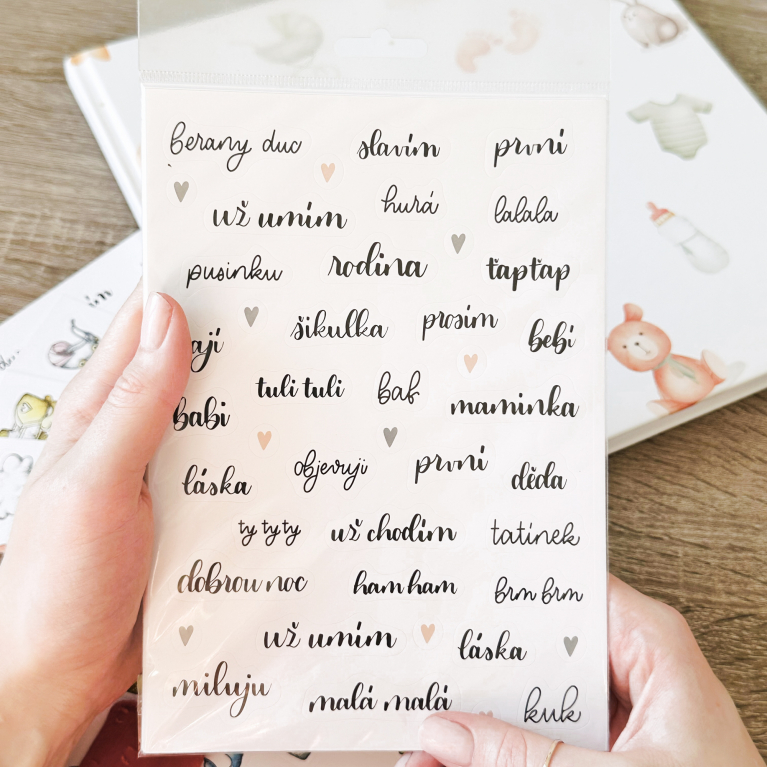 berany duc
slavím
první
už umím
hurá
lalala
pusinku
rodina
ťapťap
šikulka
prosím
bebí
ají
tuli tuli
baf
maminka
babi
láska
objevuji
první
děda
ty ty ty
už chodím
tatínek
dobrou noc
ham ham
brm brm
už umím
láska
miluju
malá malá
kuk